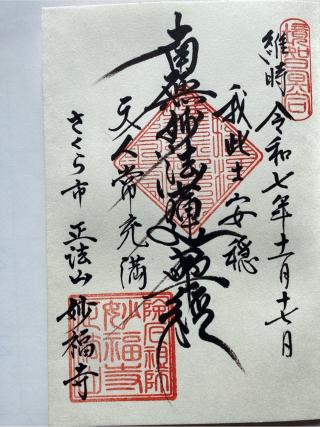 境智冥合
維時 令和七年十二月十七日
我此土安穏
南無妙法蓮華経
天人常充満
さくら市 正法山 妙福寺
除厄祖師
妙福寺